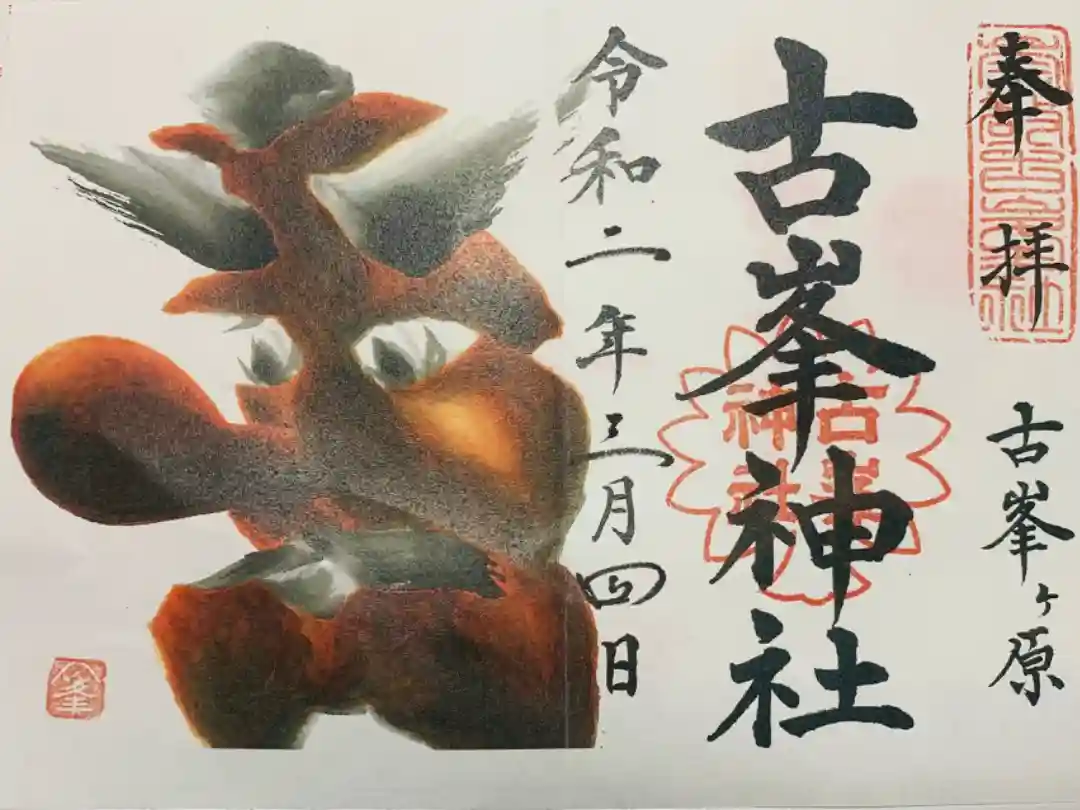 奉拝
古峯ヶ原
古峯神社
令和二年三月四日
古峯
神社
峯